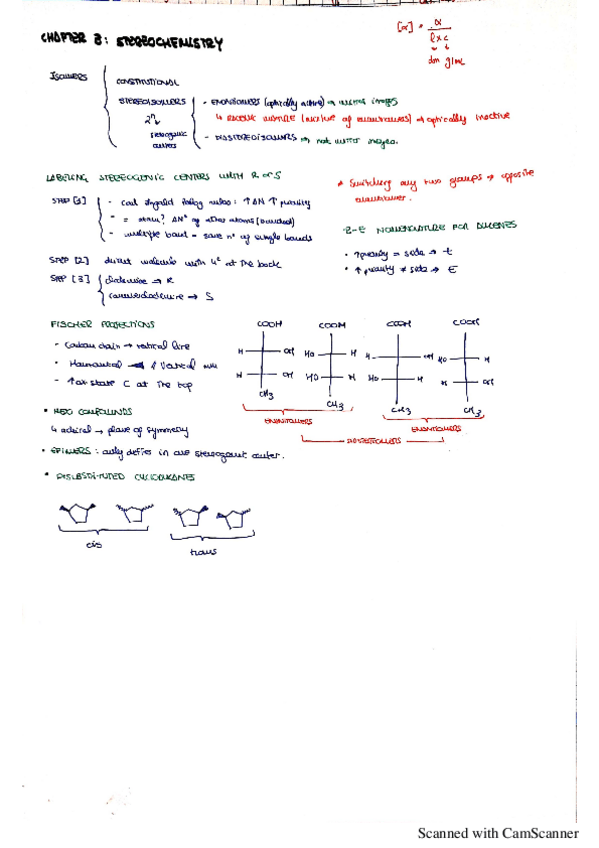 CHAPTER 3: STEREOCHEMISTRY
[α] = α
l x c
dm g/mL
ISOMERS
CONSTITUTIONAL
STEREOISOMERS
2ⁿ
stereogenic
centers
- ENANTIOMERS (optically active) → mirror images
↳ racemic mixture (mixture of enantiomers) → optically inactive
- DIASTEREOISOMERS → not mirror images.
LABELING STEREOGENIC CENTERS WITH R OR S
* Switching any two groups → opposite
enantiomer.
STEP [1]
- Cahn Ingold Prelog rules: ↑AN ↑ priority
- = atom? AN of other atoms (bonded)
- multiple bond = same nº of single bonds
STEP [2] molecule with 4º at the back
STEP [3] clockwise → R
counterclockwise → S
Z-E NOMENCLATURE FOR ALKENES
• ↑priority = side → Z
• ↑priority ≠ side → E
FISCHER PROJECTIONS
- Carbon chain → vertical line
- Horizontal Vertical
- C at the top
COOH COOH COOH COOH
H OH HO H H OH HO H
H OH HO H HO H H OH
CH3 CH3 CH3 CH3
ENANTIOMERS ENANTIOMERS
DIASTEREOMERS
• MESO COMPOUNDS
↳ achiral → plane of symmetry
• EPIMERS: only differ in one stereogenic center.
• DISUBSTITUTED CYCLOALKANES
cis
trans
Scanned with CamScanner